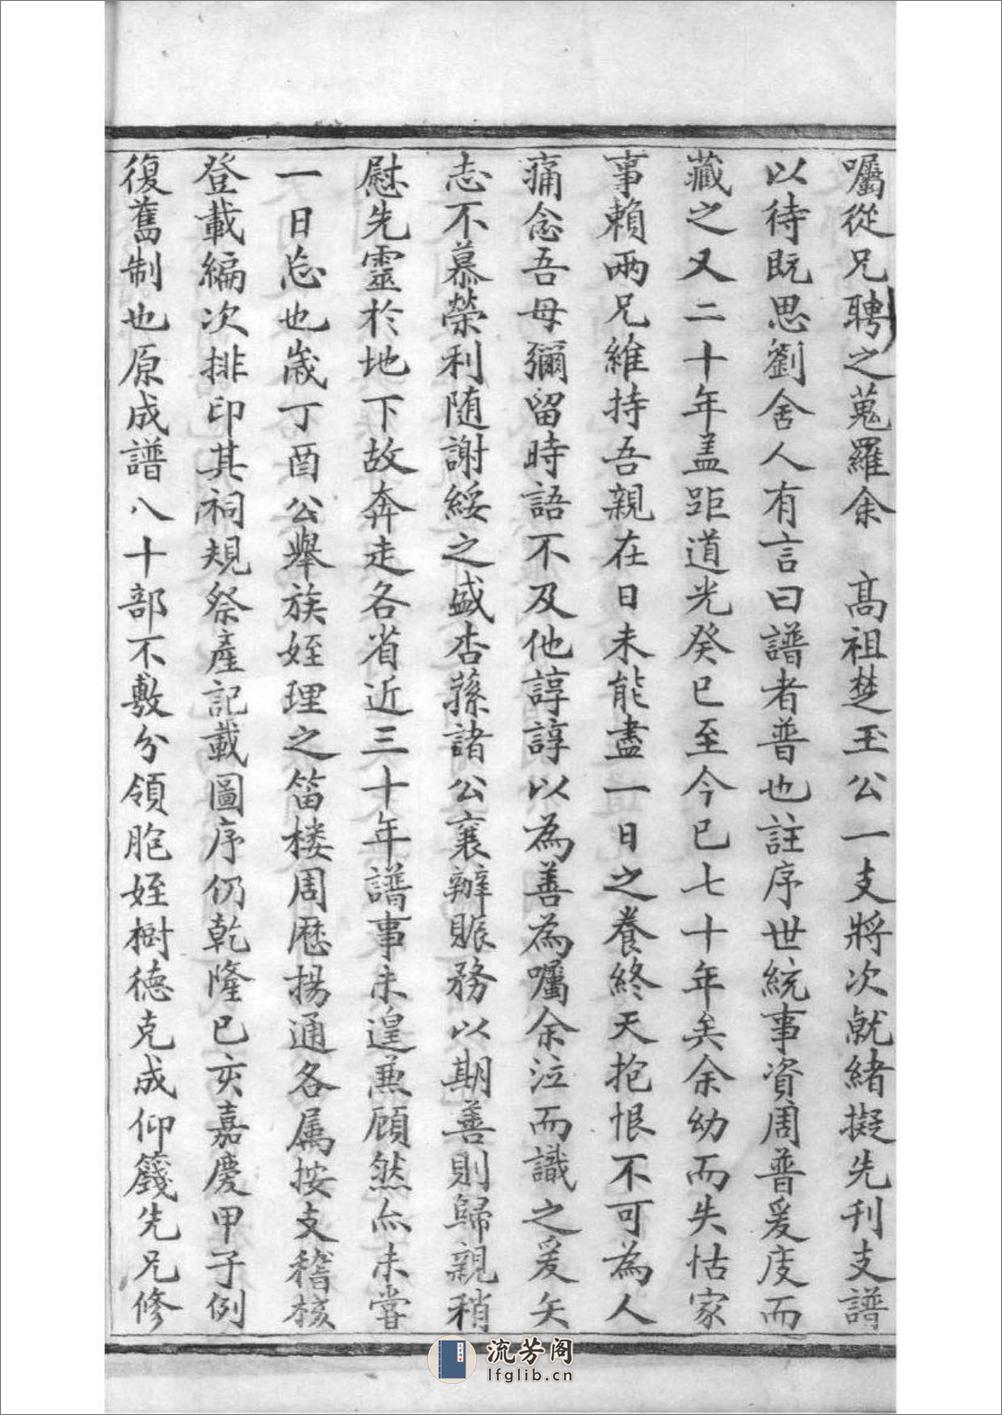 囑從兄聘之蒐羅余　高祖楚玉公一支將次就緒擬先刊支譜
以待既思劉舍人有言曰譜者普也註序世統事資周普爰庋而
藏之又二十年盖距道光癸巳至今已七十年矣余幼而失怙家
事賴兩兄維持吾親在日未能盡一日之養終天抱恨不可為人
痛念吾母彌留時語不及他諄諄以為善為囑余泣而識之爰矢
志不慕榮利随謝綏之盛杏蓀諸公襄辦賑務以期善則歸親稍
慰先靈於地下故奔走各省近三十年譜事未遑兼顧然亦未嘗
一日忘也歲丁酉公舉族姪理之笛楼周歷揚通各属按支稽核
登載編次排印其祠規祭產記載圖序仍乾隆己亥嘉慶甲子例
復舊制也原成譜八十部不敷分領胞姪樹德克成仰籛先兄修
流芳阁
lfglib.cn